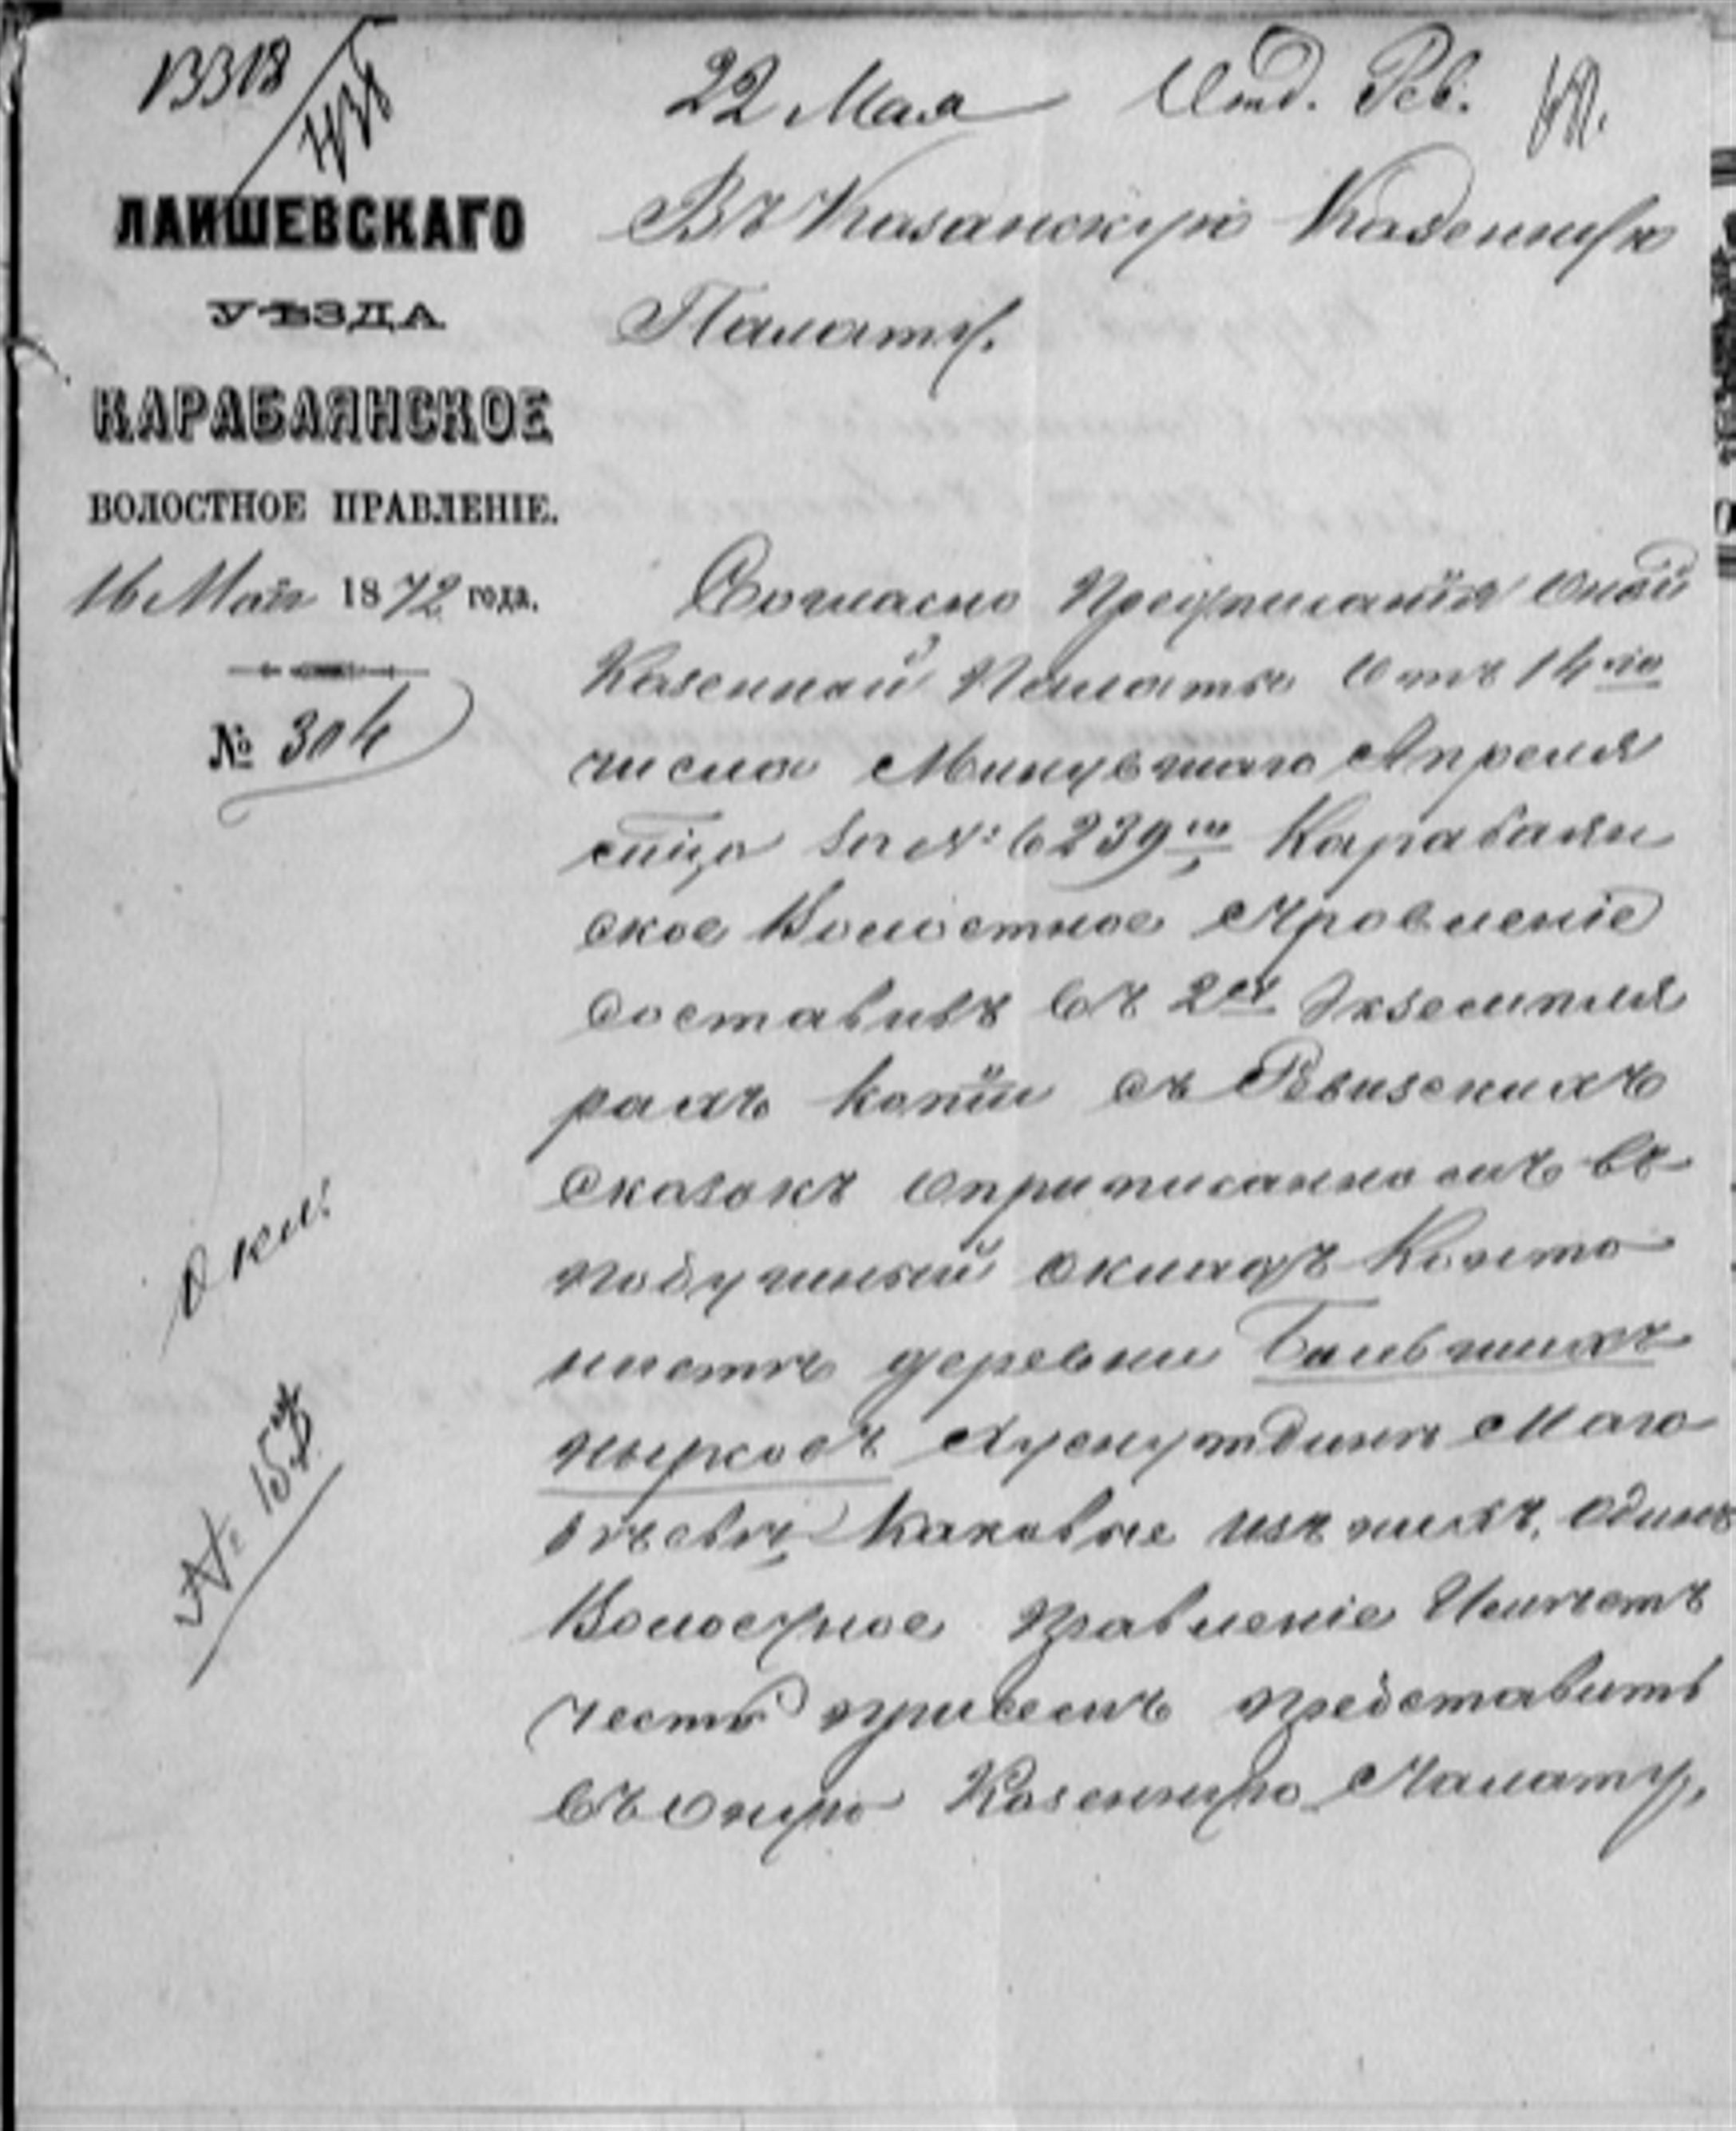 13318
22 Мая Отд. Рев.
ЛАИШЕВСКАГО
УѢЗДА
КАРАБАЯНСКОЕ
ВОЛОСТНОЕ ПРАВЛЕНІЕ.
16 Мая 1872 года.
№ 304
Въ Казанскую Казенную
Палату.
Согласно Предписанія оной
Казенной Палаты отъ 14го
числа Минувшаго Апреля
за № 6239мъ Карабаян
ское Волостное Правленіе
составивъ въ 2хъ Экземпля
рахъ копіи съ Ревизскихъ
сказокъ о приписанномъ въ
подушный окладъ Канто
нистѣ деревни Большихъ
Нырсовъ Хуснутдинѣ
каковые изъ нихъ, одинъ
Волостное Правленіе Имѣетъ
честь присемъ представить
въ оную Казенную Палату,
№ 15